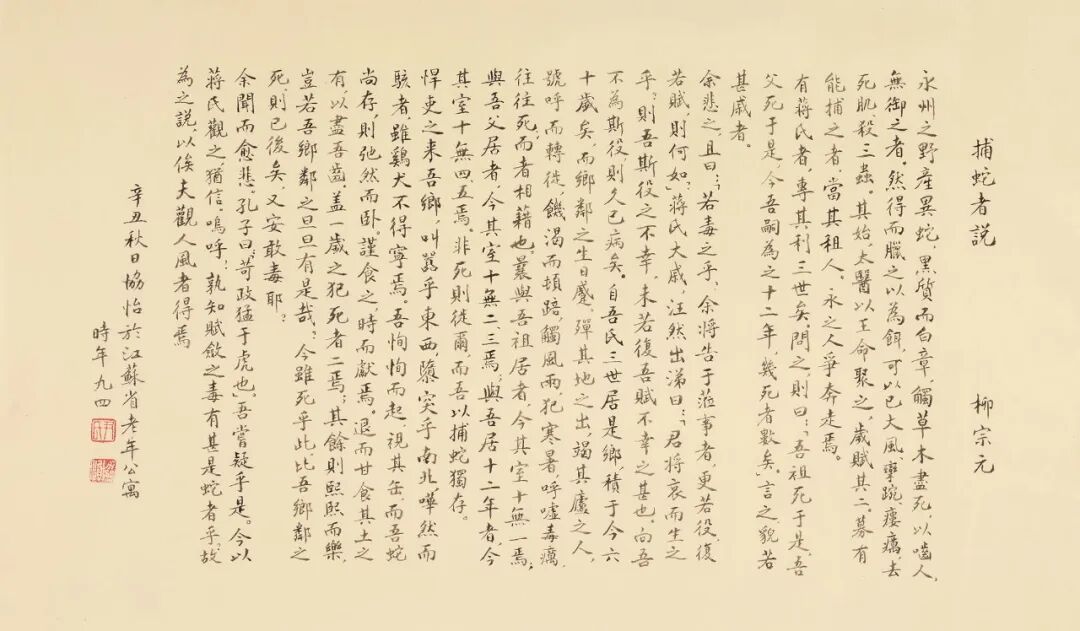 捕蛇者說 柳宗元
永州之野產異蛇，黑质而白章，觸草木盡死，以嚙人，
無御之者。然得而臘之以為餌，可以已大風、攣踠、瘻癘，去
死肌，殺三蟲。其始，太醫以王命聚之，歲賦其二。募有
能捕之者，當其租入。永之人爭奔走焉。
有蔣氏者，專其利三世矣。問之，則曰：「吾祖死于是，吾
父死于是，今吾嗣為之十二年，幾死者數矣。」言之，貌若
甚戚者。
余悲之，且曰：「若毒之乎？余將告于蒞事者，更若役，復
若賦，則何如？」蔣氏大戚，汪然出涕曰：「君將哀而生之
乎？則吾斯役之不幸，未若復吾賦不幸之甚也。向吾
不為斯役，則久已病矣。自吾氏三世居是鄉，積于今六
十歲矣，而鄉鄰之生日蹙，殫其地之出，竭其廬之入，
號呼而轉徙，饑渴而頓踣，觸風雨，犯寒暑，呼噓毒癘，
往往死而者相藉也。曩與吾祖居者，今其室十無一焉；
與吾父居者，今其室十無二、三焉；與吾居十二年者，今
其室十無四、五焉。非死則徙爾，而吾以捕蛇獨存。
悍吏之來吾鄉，叫囂乎東西，隳突乎南北，嘩然而
駭者，雖鷄犬不得寧焉。吾恂恂而起，視其缶，而吾蛇
尚存，則弛然而卧。謹食之，時而獻焉。退而甘食其土之
有，以盡吾齒。盖一歲之犯死者二焉；其餘則熙熙而樂，
豈若吾鄉鄰之旦旦有是哉？今雖死乎此，比吾鄉鄰之
死，則已後矣，又安敢毒耶？
余聞而愈悲。孔子曰：「苛政猛于虎也。」吾嘗疑乎是。今以
蔣氏觀之，猶信。嗚呼！孰知賦斂之毒有甚是蛇者乎。故
為之說，以俟夫觀人風者得焉
辛丑秋日協怡於江蘇省老年公寓
時年九四